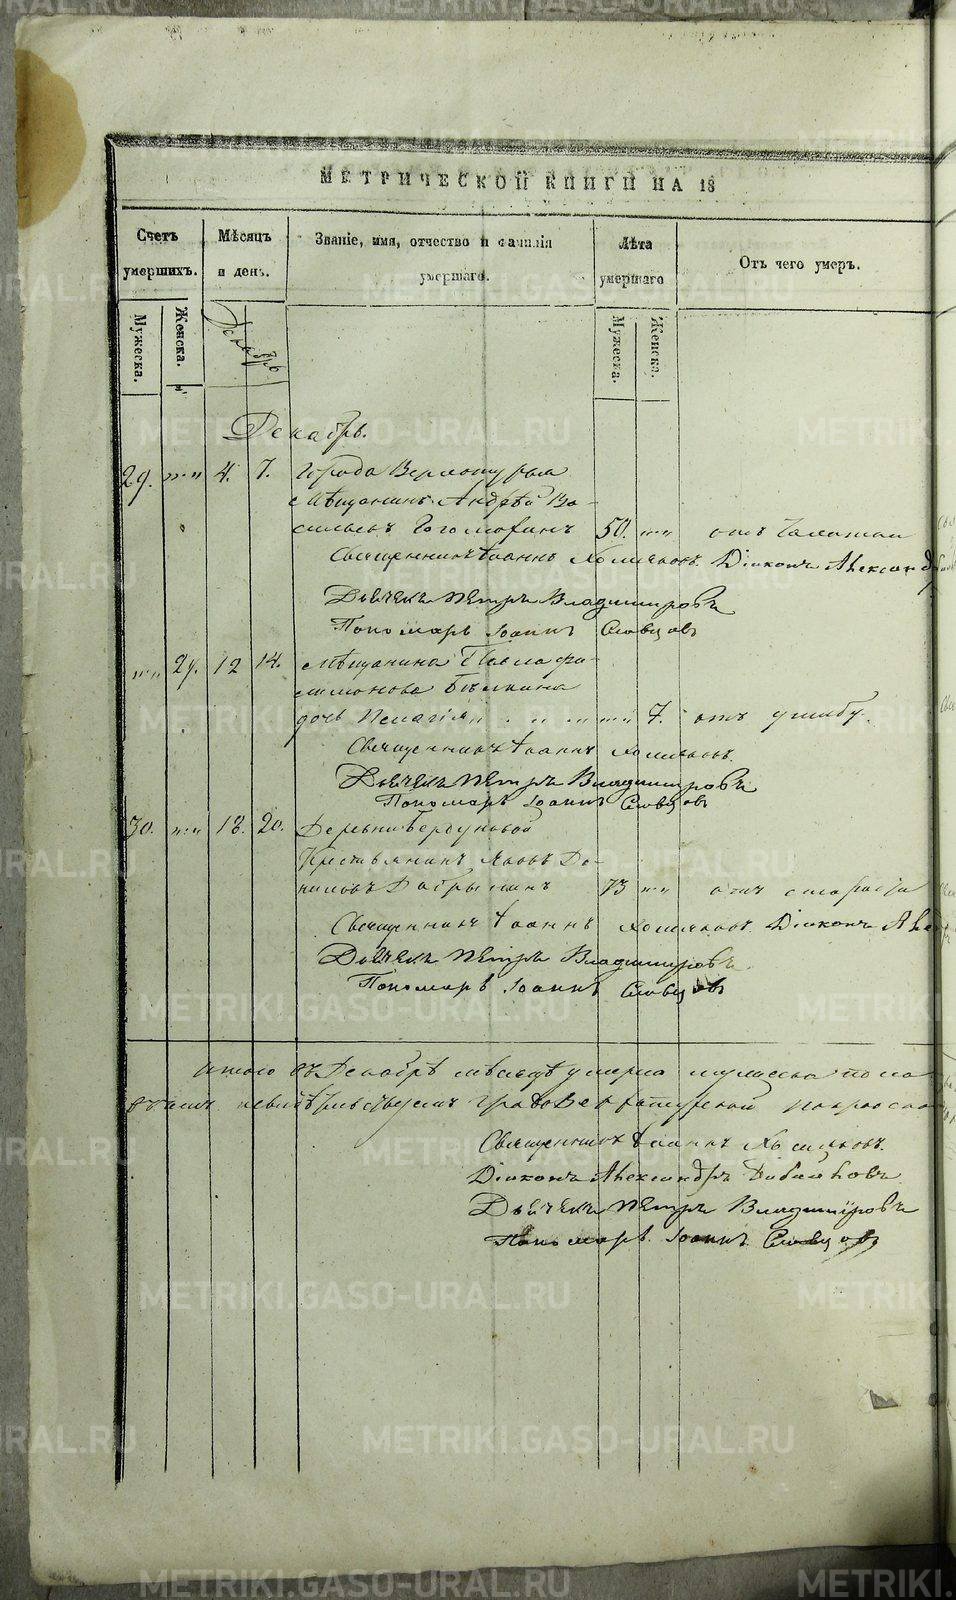 МЕТРИЧЕСКОЙ КНИГИ НА 18
Счетъ умершихъ.
Мѣсяцъ и день.
Званіе, имя, отчество и фамилія умершаго.
Лѣта умершаго
Отъ чего умеръ.
Мужеска.
Женска.
Декабрь
Мужеска.
Женска.
Декабрь.
29. "" 4. 7. Города Верхотурья
мѣщанинъ Андрей Ва-
сильевъ 50. "" отъ
Священникъ Іоаннъ Хомяковъ. Діаконъ Александръ
Дьячекъ Петръ Владимировъ
Пономарь Іоаннъ Словцовъ
"" 29. 12 14. Мѣщанина Павла Фи-
лимонова
дочь Пелагія " " " "" 7. отъ ушибу.
Священникъ Іоаннъ Хомяковъ.
Дьячекъ Петръ Владимировъ
Пономарь Іоаннъ Словцовъ
30. "" 18. 20. Деревни
Крестьянинъ Яковъ Да-
ниловъ Добрынинъ 73 "" отъ старости
Священникъ Іоаннъ Хомяковъ. Діаконъ Але
Дьячекъ Петръ Владимировъ
Пономарь Іоаннъ Словцовъ
Итого въ Декабрѣ мѣсяцѣ умерло мужеска пола
Священникъ Іоаннъ Хомяковъ.
Діаконъ Александръ
Дьячекъ Петръ Владиміровъ
Пономарь Іоаннъ Словцовъ
METRIKI.GASO-URAL.RU